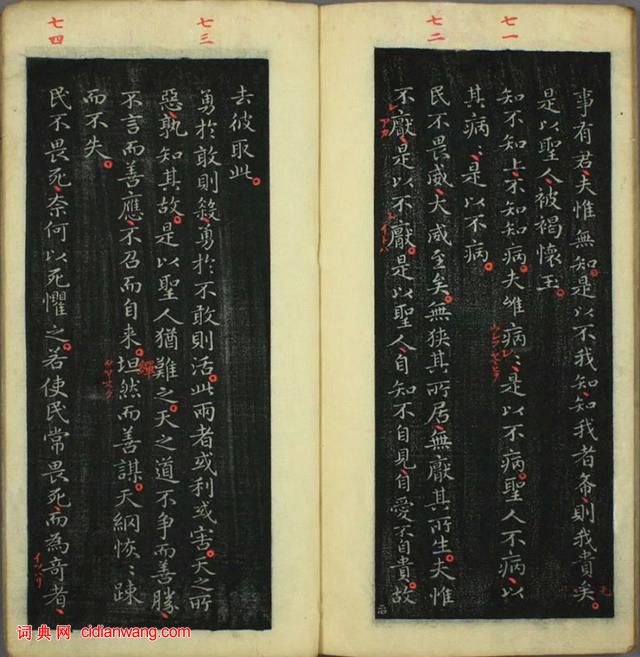 七一
七二
事有君、夫惟無知。是以不我知、知我者希、則我貴矣。
是以聖人、被褐懷玉。
知不知上、不知知病。夫惟病:、是以不病。聖人不病、以
其病:、是以不病。
民不畏威、大威至矣。無狹其所居、無厭其所生。夫惟
不厭、是以不厭。是以聖人、自知不自見、自愛不自貴。故
七三
七四
去彼取此。
勇於敢則殺、勇於不敢則活。此兩者或利或害。天之所
惡、孰知其故。是以聖人猶難之。天之道不爭而善勝、
不言而善應、不召而自來。坦然而善謀。天網恢:、踈
而不失。
民不畏死、奈何以死懼之。若使民常畏死、而為奇者、
繟
词典网 cidianwang.com